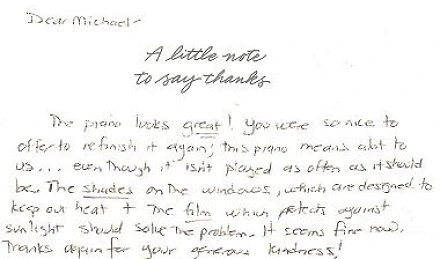 Dear Michael-
A little note
to say thanks
The piano looks great! You were so nice to
offer to refinish it again; this piano means alot to
us... even though it isn't played as often as it should
be. The shades on the windows, which are designed to
keep out heat + the film which protects against
sunlight should solve the problem. It seems fine now.
Thanks again for your generous kindness!